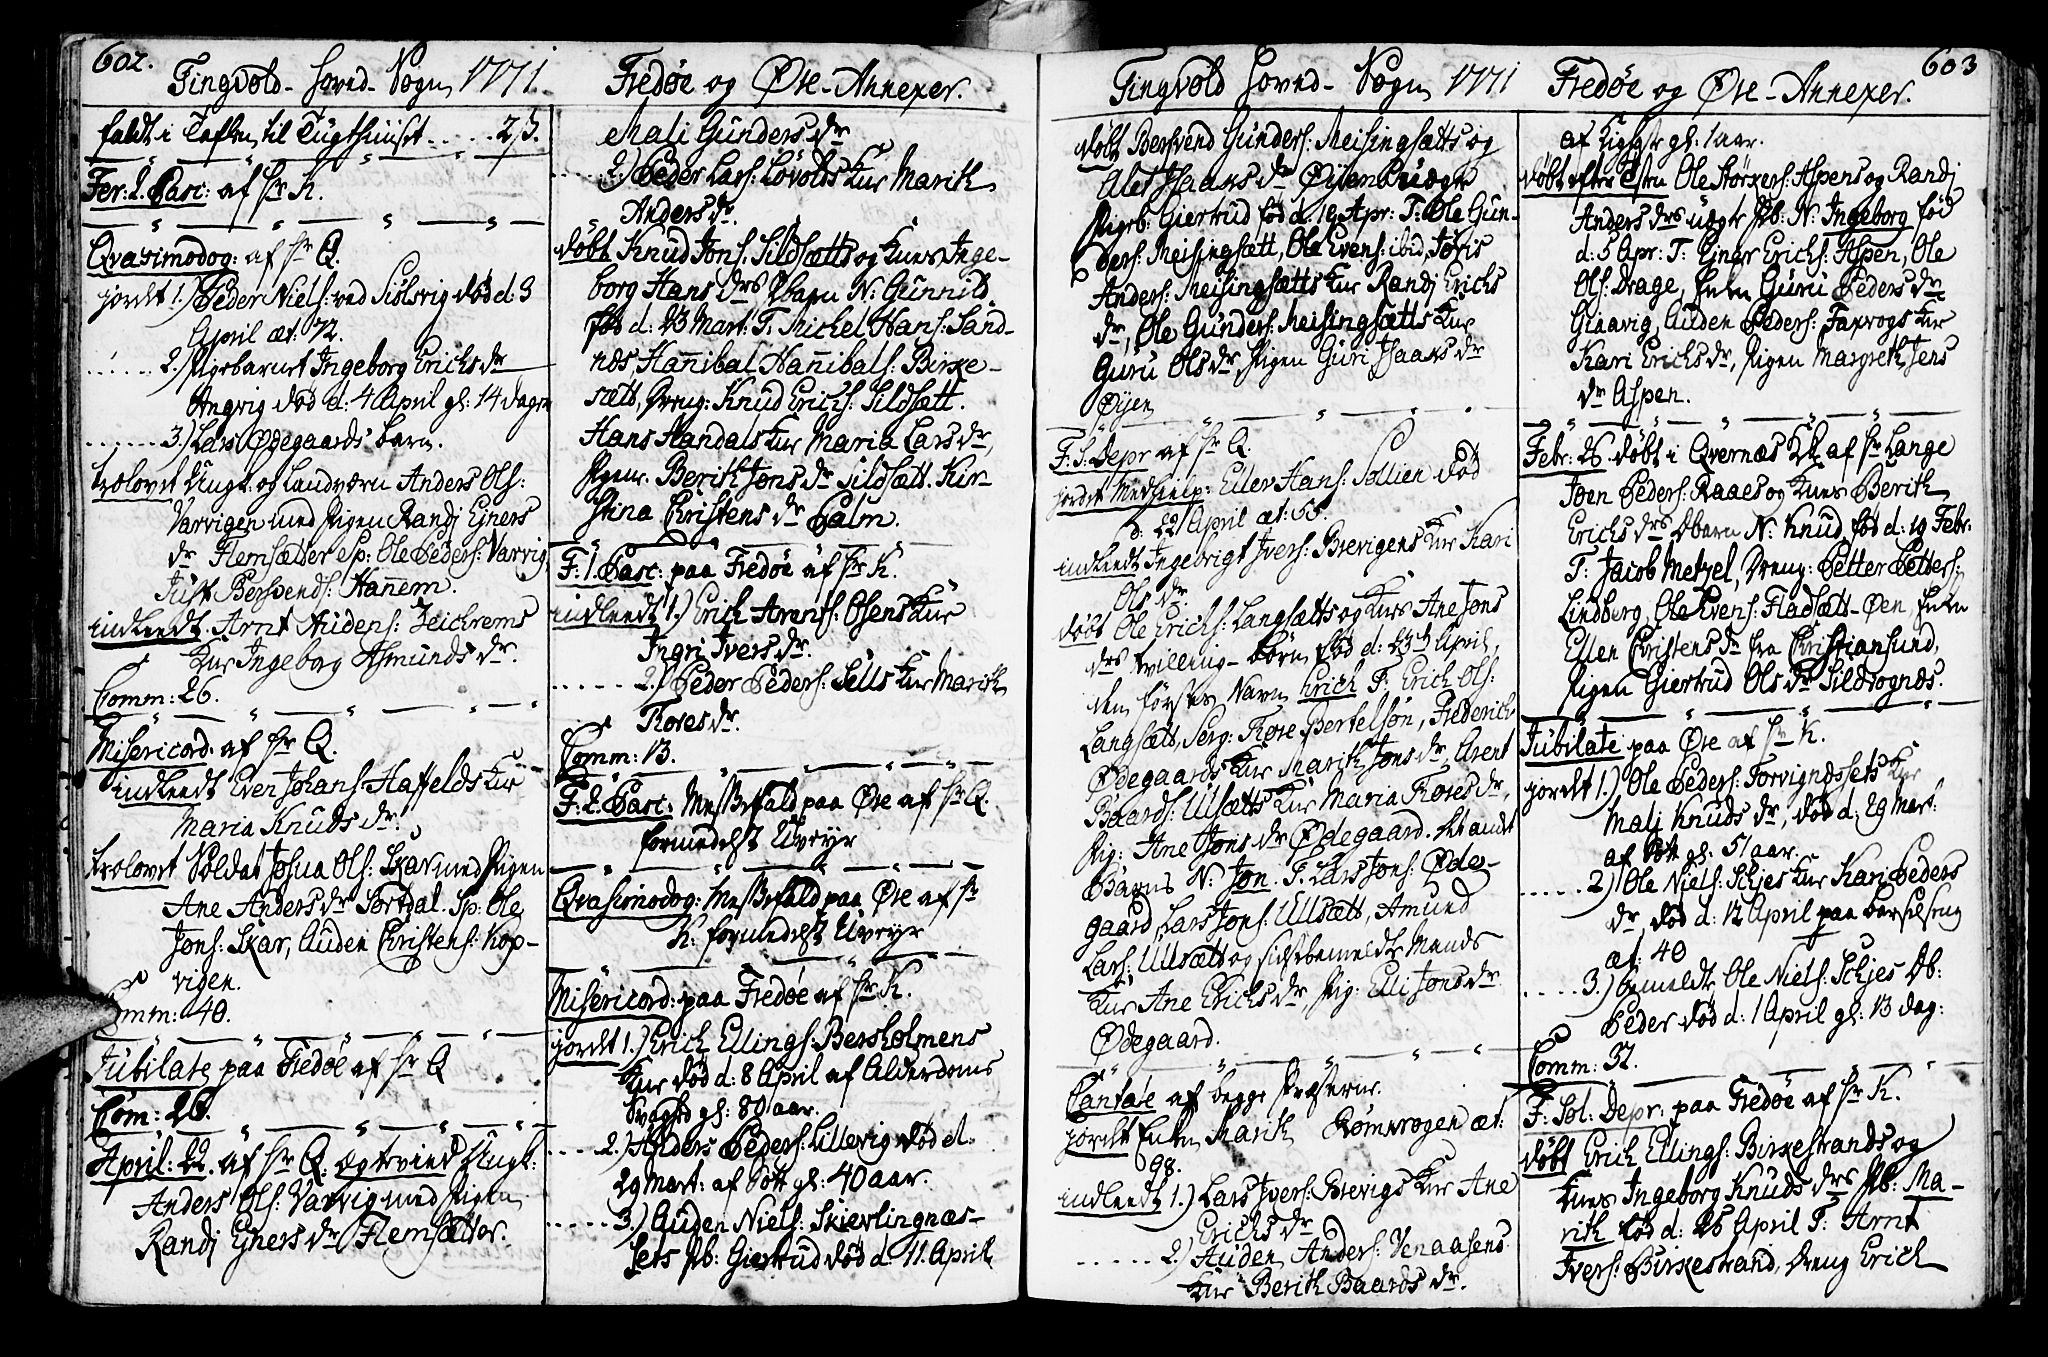 602.
Tingvold - Hoved - Sogn 1771
faldt i Taflen til Tugthuuset . . . . 2 ß.
Fer: 2. Pasc: af Hr K.
Qvasimodog: af Hr Q.
jordet 1.) Peder Niels: ved Siölsvig död d: 3
April æt: 72.
2.) Pigebarnet Ingeborg Erichs dr
Angvig död d: 4 April gl: 14 dage
3.) Lars Ødegaards barn.
trolovet Ungk: og Landværn Anders Ols:
Varvigen med Pigen Randj Ejners
dr Flemsætter Sp: Ole Peders: Varvig,
Just Bersvends: Hañem.
indleedt Arnt Audens: Zeichrems
Kur Ingeborg Asmunds dr.
Comm: 26.
Misericord: af Hr Q.
indleedt Even Johans: Haffelds Kur
Maria Knuds dr.
trolovet Soldat Josua Ols: Skar med Pigen
Ane Anders dr Sørtdal. Sp: Ole
Jons: Skar, Auden Christens: Kop-
vigen.
Comm: 40.
Jubilate paa Fredöe af Hr Q
Com: 26.
April: 22. af Hr Q: ægtevied Ungk:
Anders Ols: Varvig med Pigen
Randj Ejners dr Flemsætter.
Fredöe og Øre - Annexer.
Mali Gunders dr
2.) Peder Lars: Lövolds Kur Marith
Anders dr.
döbt Knud Jons: Sildsætts og Kurs Inge-
borg Hans drs Pbarn N: Gunnild
fød d: 23 Mart: T: Michel Hans: Sand-
næs Hañibal Hañibals: Birke-
sætt, Dreng: Knud Erichs: Sildsætt.
Hans Handals Kur Maria Lars dr,
Pigen: Berith Jons dr Sildsætt. Kir-
stina Christens dr Palm.
F: 1. Pasc: paa Fredöe af Hr K.
indleedt 1.) Erich Arents: Olsens Kur
Ingri Ivers dr.
2.) Peder Peders: Sells Kur Marith
Tores dr.
Comm: 13.
F: 2. Pasc: Messefald paa Øre af Hr Q.
formedelst Uveyr
Qvasimodog: Messefald paa Øre af Hr
K: formedelst Uveyr
Misericord: paa Fredöe af Hr K.
jordet 1.) Erich Ellings: Bersholmens
Kur död d: 8 April af Alderdoms
Svaghed gl: 80 aar.
2.) Anders Peders: Lillevig död d:
29 Mart: af Sott gl: 40 aar.
3.) Auden Niels: Skierlingnæs-
sets Pb: Giertrud död d: 11. April
603
Tingvold Hoved - Sogn 1771
döbt Bersvend Gunders: Meisingsætts og
Alet Isaaks dr Øyen Uægte
Pigeb: Giertrud föd d: 19 Apr: T: Ole Gun-
ders: Meisingsætt, Ole Evens: ibid, Joris
Anders: Meisingsætts Kur Randj Erichs
dr, Ole Gunders: Meisingsætts Kur
Guru Ols dr, Pigen Guri Isaaks dr
Øyen
F: S: Depr af Hr Q.
jordet Medhielp: Ellev Hans: Sollien död
d: 22 April æt: 55.
indleedt Ingebrigt Ivers: Brevigens Kur Kari
Ols dr.
döbt Ole Erichs: Langsætts og Kurs Ane Jons
drs tvilling-Börn föd d: 23de April,
den förstes Navn Erich T: Erich Ols:
Langsætt, Serg: Tore Bertelsön, Frederich
Ødegaards Kur Marith Jons dr, Arent
Baards: Ulsætts Kur Maria Tores dr,
Pig: Ane Jons dr Ødegaard. Det andet
Barns N: Jon. T: Lars Jons: Øde-
gaard, Lars Jons: Ullsætt, Amund
Lars: Ullsætt og sidstbemeldte Mands
Kur Ane Erichs dr Pig: Elli Jons dr
Ødegaard.
Cantate af begge Præsterne.
jordet Enken Marith Römkrogen æt:
98.
indleedt 1.) Lars Ivers: Brevigs Kur Ane
Erichs dr
2.) Auden Anders: Venaasens
Kur Berith Baards dr.
Fredöe og Øre - Annexer.
af Kighoste gl: 1 aar.
döbt efter Testen Ole Störkers: Aspens og Randj
Anders drs uægte Pb: N: Ingeborg föd
d: 5 Apr: T: Ejner Erichs: Aspen, Ole
Ols: Drage, Enken Guru Peders dr
Giaavig, Auden Peders: Faxvogs Kur
Kari Erichs dr, Pigen Margreth Jens
dr Aspen.
Febr: 26. döbt i Qvernæs K: af Hr Lange
Joen Peders: Raaes og Kurs Berith
Erichs drs Dbarn N: Knud föd d: 19 Febr:
T: Jacob Metzel, Dreng: Petter Petters:
Lindberg, Ole Evens: Fladsætt-Øen, Enken
Ellen Christens dr fra Christiansund,
Pigen Giertrud Ols dr Sildvognæs.
Jubilate paa Øre af Hr K.
jordet 1.) Ole Peders: Torvignæssets Kur
Mali Knuds dr, död d: 29 Mart:
af Sott gl: 51 aar.
2.) Ole Niels: Schjes Kur Kari Peders
dr, död d: 12 April paa Barselseng
æt: 40
3.) bemeldte Ole Niels: Schjes Db:
Peder död d: 1 April gl: 13 dag:
Comm: 37.
F: Sol: Depr: paa Fredöe af Hr K.
döbt Erich Ellings: Birkestrands og
Kurs Ingeborg Knuds drs Pb: Ma-
rith föd d: 26 April T: Arnt
Ivers: Birkestrand, Dreng Erich